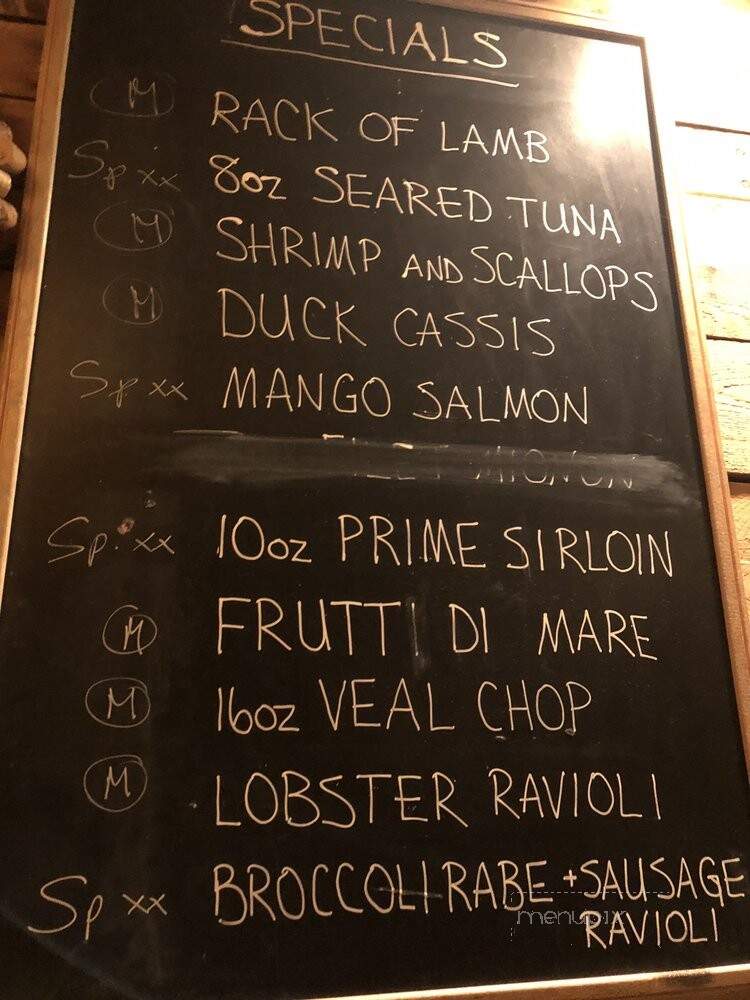 SPECIALS
M RACK OF LAMB
Sp xx 8oz SEARED TUNA
M SHRIMP AND SCALLOPS
M DUCK CASSIS
Sp xx MANGO SALMON
MIGNON
Sp. xx 10oz PRIME SIRLOIN
M FRUTTI DI MARE
M 16oz VEAL CHOP
M LOBSTER RAVIOLI
Sp xx BROCCOLI RABE + SAUSAGE
RAVIOLI
menupix